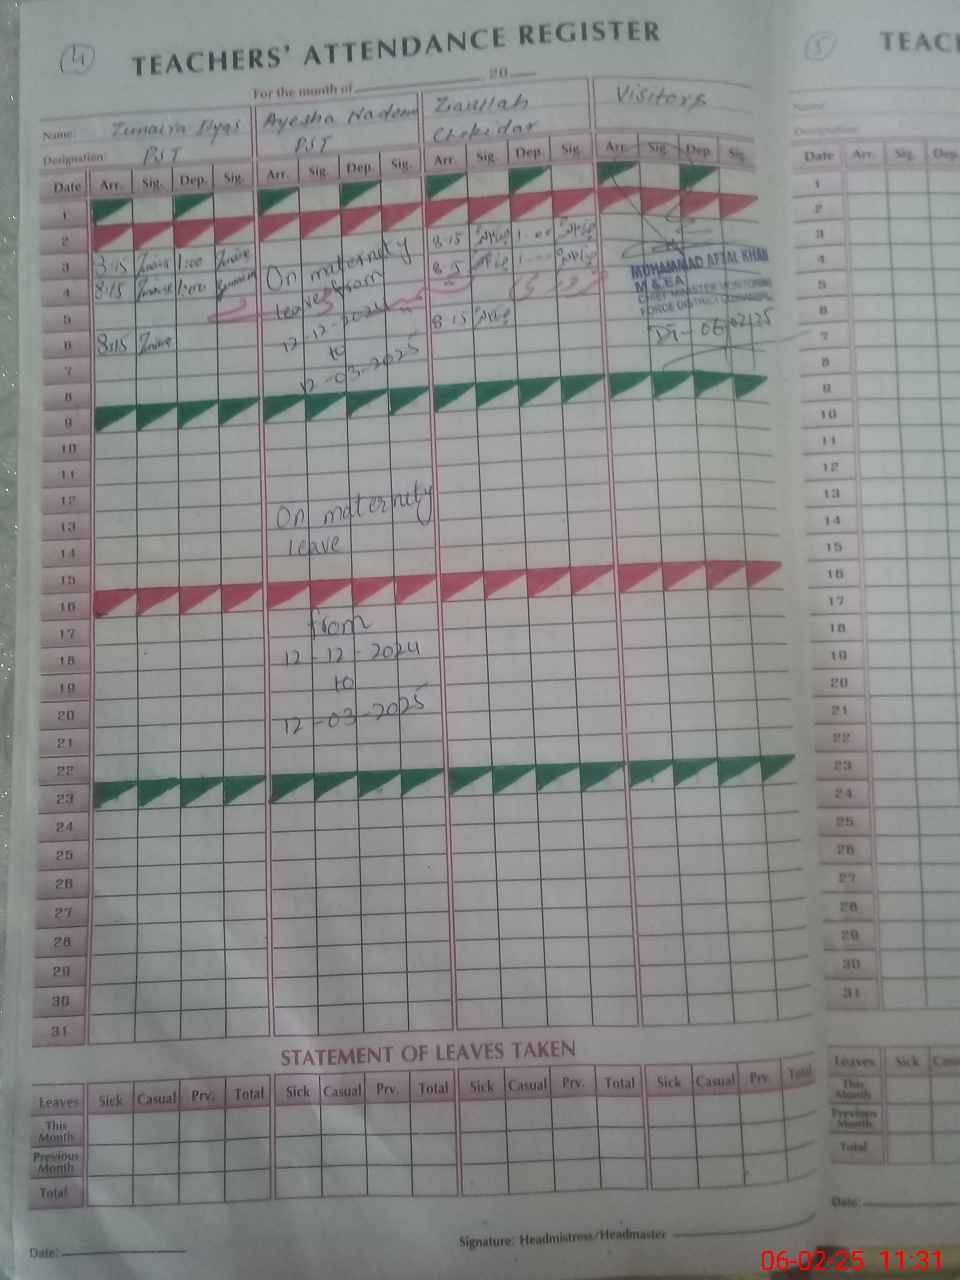 4
TEACHERS' ATTENDANCE REGISTER
For the month of 20
Name: Zunaira Ilyas Ayesha Nadeem Ziaullah Visitors
Designation: PST PST Chokidar
Date Arr. Sig. Dep. Sig. Arr. Sig. Dep. Sig. Arr. Sig. Dep. Sig. Arr. Sig. Dep. Sig.
1
2
3 8:15 1:00 On maternity 8:15 1:00
4 8:15 1:00 leave from
5 12-12-2024
6 8:15 to 8:15
7 12-03-2025
8
9
10
11
12
13 On maternity
14 leave
15
16
17 from
18 12-12-2024
19 to
20 12-03-2025
21
22
23
24
25
26
27
28
29
30
31
MUHAMMAD AFTAL KHAN
M & EA
CHIEF MINISTER MONITORING
06/02/25
STATEMENT OF LEAVES TAKEN
Leaves Sick Casual Prv. Total Sick Casual Prv. Total Sick Casual Prv. Total Sick Casual Prv. Total
This Month
Previous Month
Total
Date:
Signature: Headmistress/Headmaster
5
TEAC
Name:
Designation:
Date Arr. Sig. Dep.
1
2
3
4
5
6
7
8
9
10
11
12
13
14
15
16
17
18
19
20
21
22
23
24
25
26
27
28
29
30
31
Leaves Sick Casu
This Month
Previous Month
Total
Date:
06-02-25 11:31